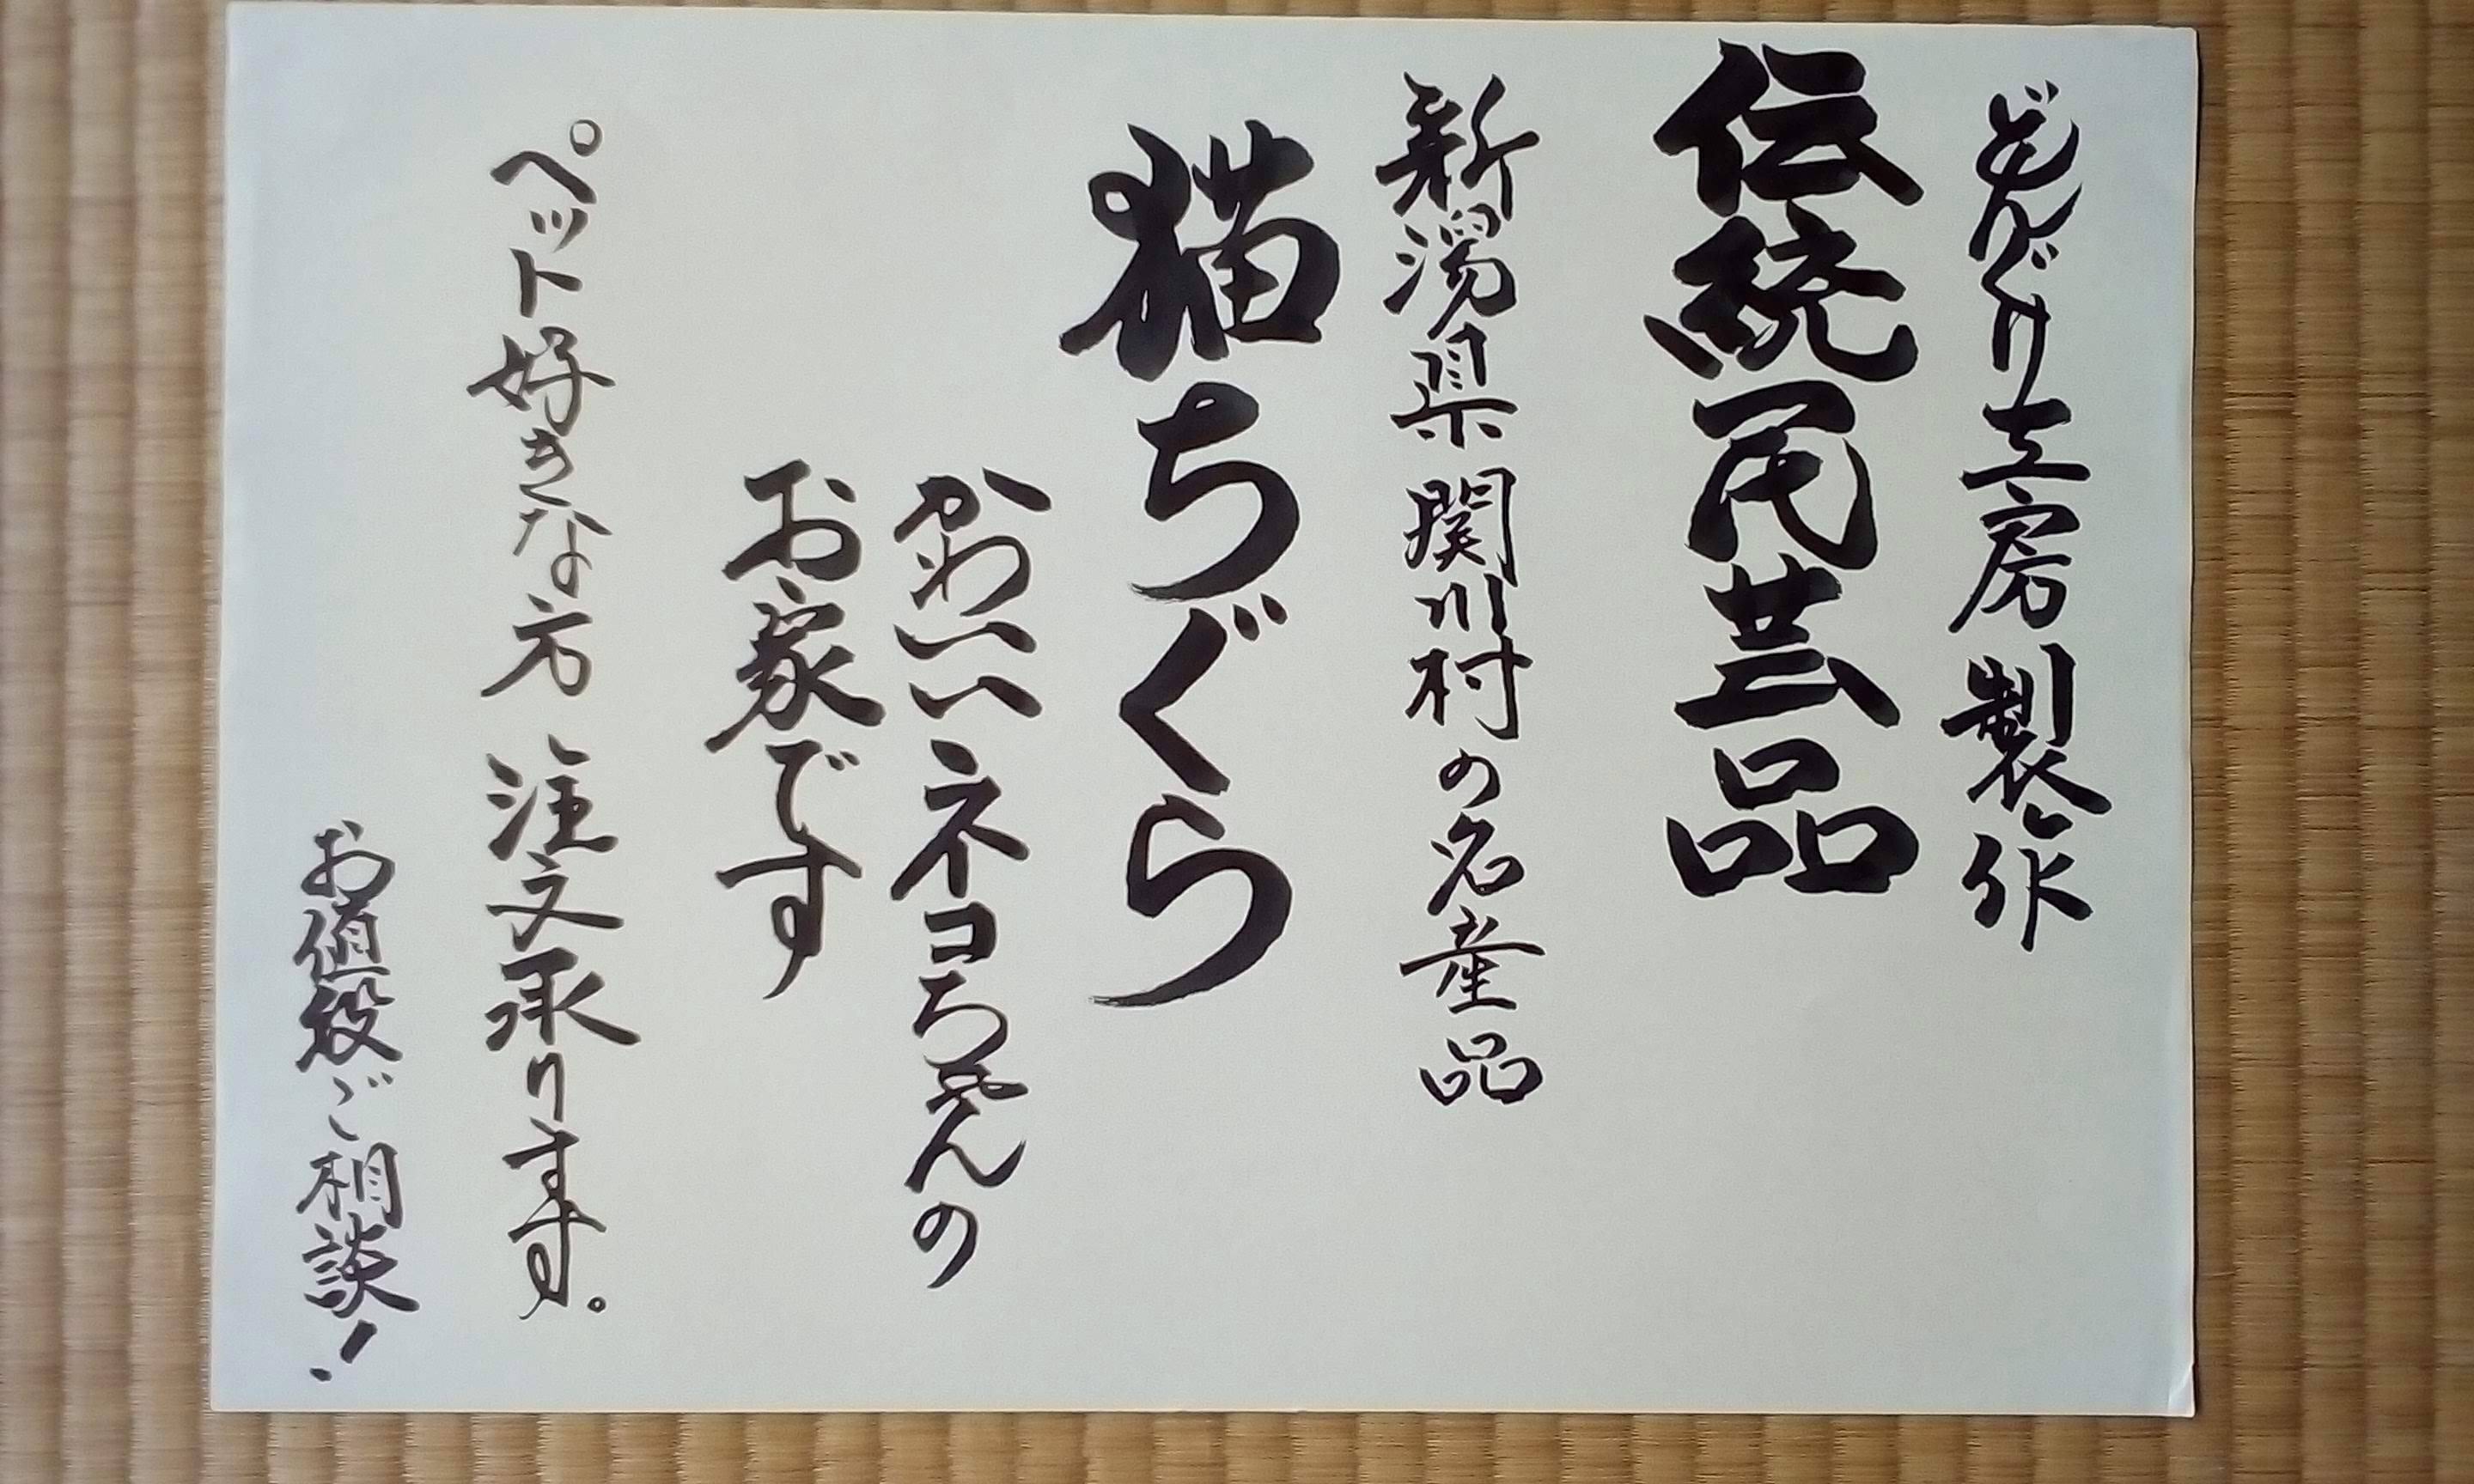 どんぐり工房 製作
伝統民芸品
新潟県 関川村の名産品
猫ちぐら
かわいいネコちゃんの
お家です
ペット好きな方 注文承ります。
お値段ご相談!